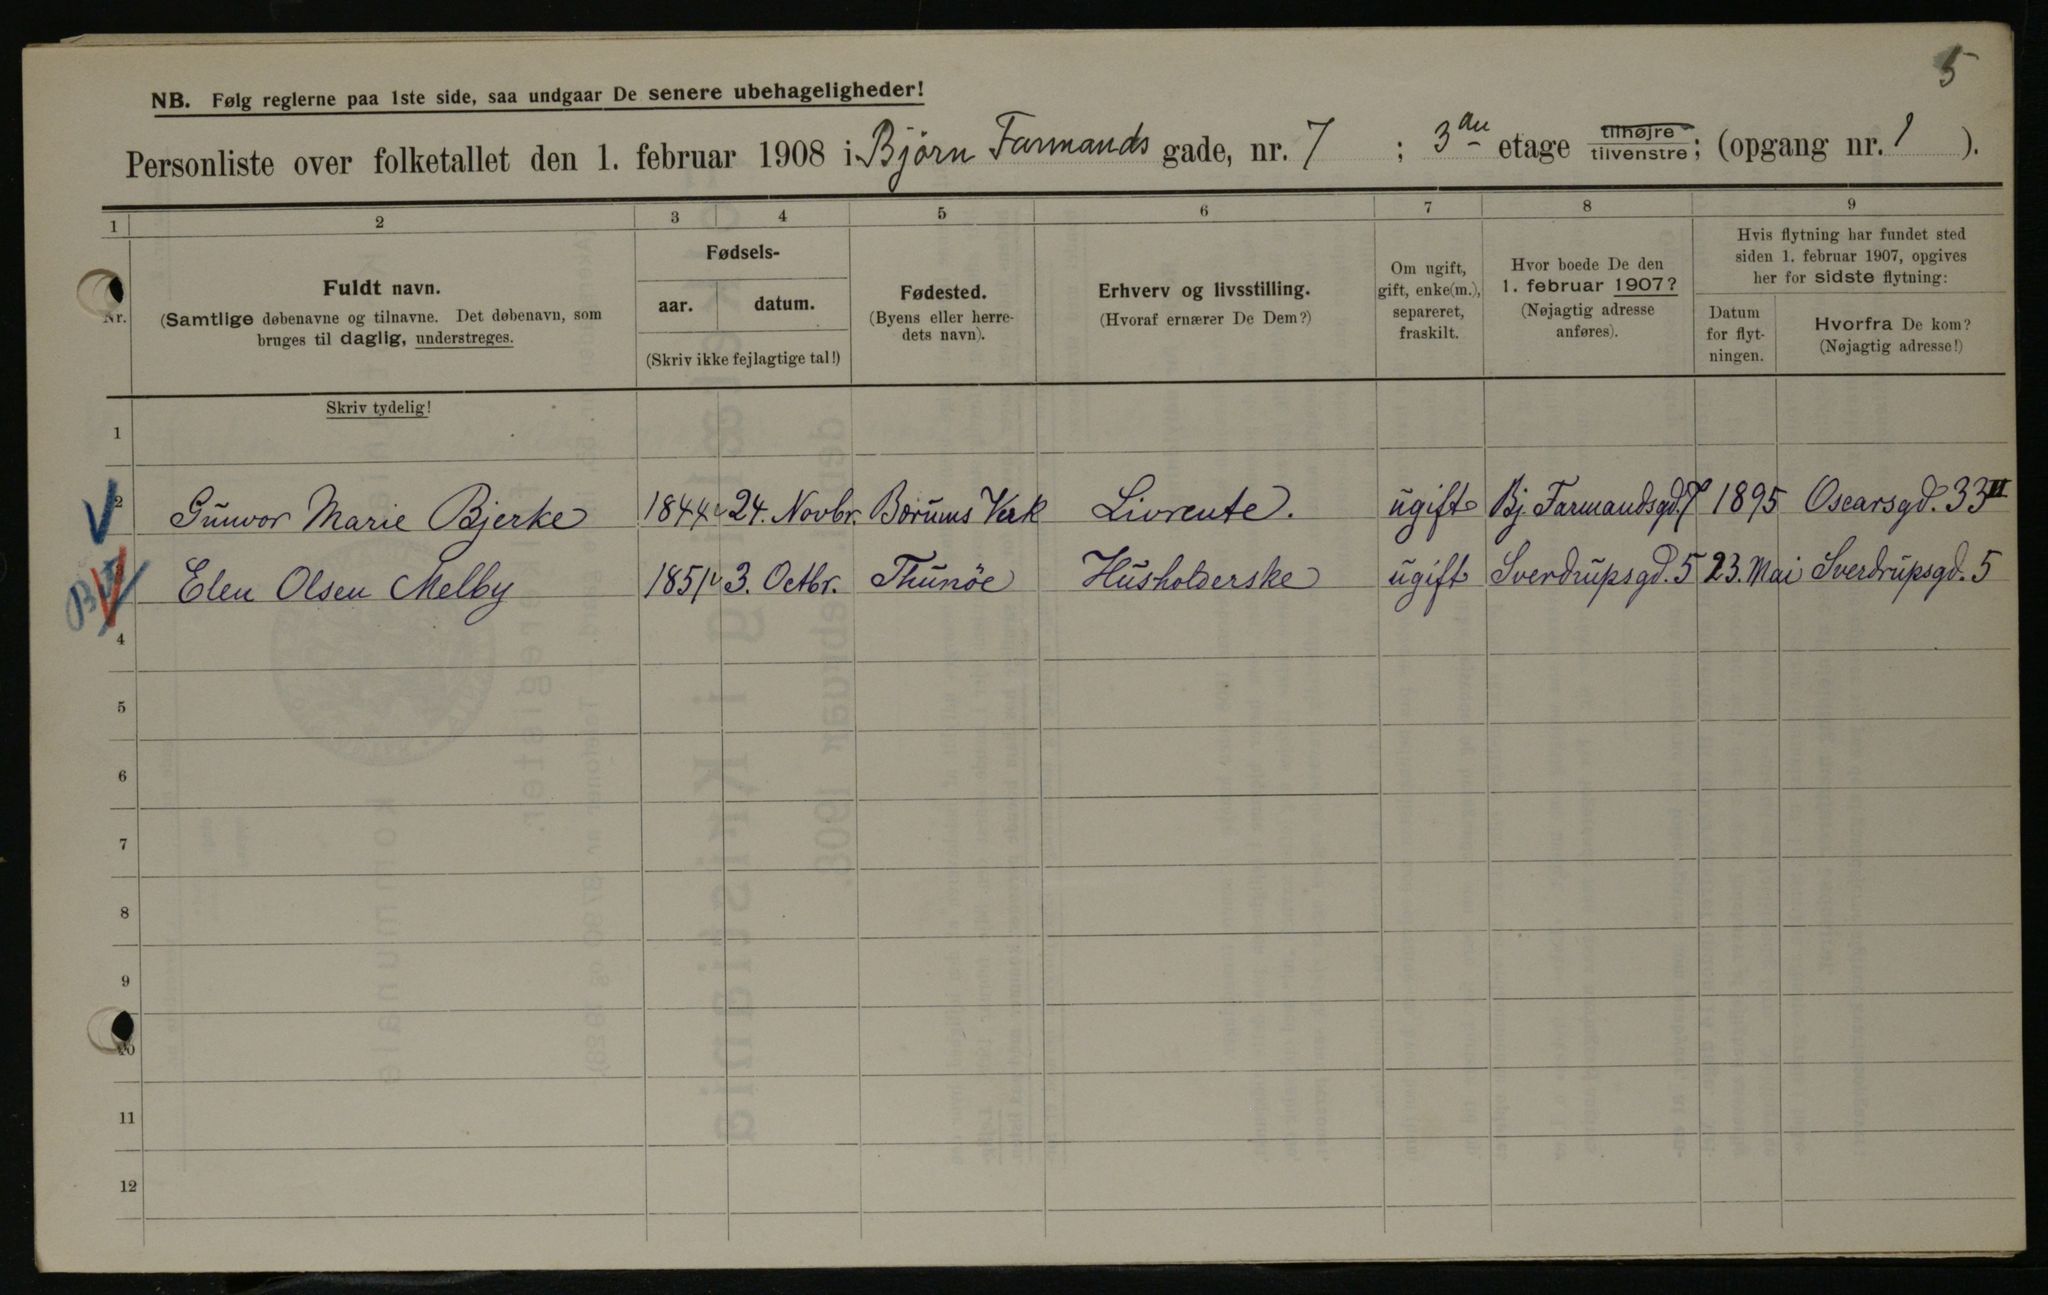 5
NB. Følg reglerne paa 1ste side, saa undgaar De senere ubehageligheder!
Personliste over folketallet den 1. februar 1908 i Bjørn Farmands gade, nr. 7 ; 3die etage tilhøjre tilvenstre; (opgang nr. 1 ).
1 2 3 4 5 6 7 8 9
Nr.
Fuldt navn.
(Samtlige døbenavne og tilnavne. Det døbenavn, som
bruges til daglig, understreges.
Fødsels-
aar. datum.
(Skriv ikke fejlagtige tal!)
Fødested.
(Byens eller herre-
dets navn).
Erhverv og livsstilling.
(Hvoraf ernærer De Dem?)
Om ugift,
gift, enke(m.),
separeret,
fraskilt.
Hvor boede De den
1. februar 1907?
(Nøjagtig adresse
anføres).
Hvis flytning har fundet sted
siden 1. februar 1907, opgives
her for sidste flytning:
Datum
for flyt-
ningen.
Hvorfra De kom?
(Nøjagtig adresse!)
Skriv tydelig!
1
2 Gunvor Marie Bjerke 1844 24. Novbr. Bærums Verk Livrente. ugift Bj. Farmandsgd. 7 1895 Oscarsgd. 33 II
3 Elen Olsen Melby 1851 3. Octbr. Thunöe Husholderske ugift Sverdrupsgd. 5 23. Mai Sverdrupsgd. 5
4
5
6
7
8
9
10
11
12